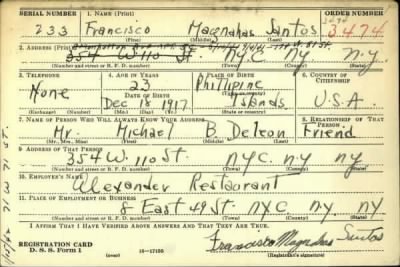 SERIAL NUMBER 1. NAME (Print) ORDER NUMBER
233 Francisco Magnahas Santos 3474
(First) (Middle) (Last)
2. ADDRESS (Print)
354 W 110 St. N.Y.C. NY N.Y.
(Number and street or R. F. D. number) (Town) (County) (State)
3. TELEPHONE 4. AGE IN YEARS 5. PLACE OF BIRTH 6. COUNTRY OF CITIZENSHIP
None 23 Phillipine U.S.A.
DATE OF BIRTH
Dec 18 1917 Islands
(Exchange) (Number) (Mo.) (Day) (Yr.) (State or country)
7. NAME OF PERSON WHO WILL ALWAYS KNOW YOUR ADDRESS 8. RELATIONSHIP OF THAT PERSON
Mr. Michael B. Deleon Friend
(Mr., Mrs., Miss) (First) (Middle) (Last)
9. ADDRESS OF THAT PERSON
354 W. 110 St. NYC. NY NY
(Number and street or R. F. D. number) (Town) (County) (State)
10. EMPLOYER'S NAME
Alexander Restaurant
11. PLACE OF EMPLOYMENT OR BUSINESS
8 East 49 St. NYC. NY. NY
(Number and street or R. F. D. number) (Town) (County) (State)
I AFFIRM THAT I HAVE VERIFIED ABOVE ANSWERS AND THAT THEY ARE TRUE.
REGISTRATION CARD
D. S. S. Form 1 (over) 16—17105 Francisco Magnahas Santos
(Registrant's signature)